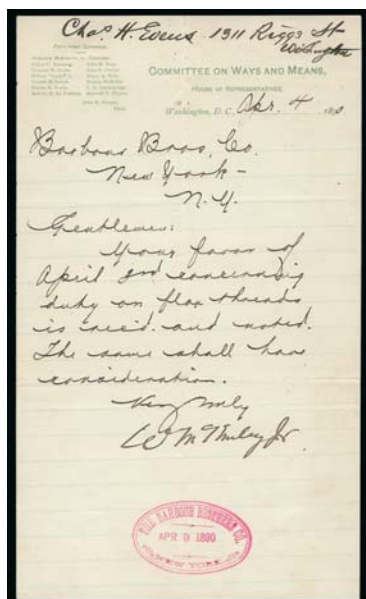 Chas. H. Evans. 1311 Riggs St
Washington
COMMITTEE ON WAYS AND MEANS,
HOUSE OF REPRESENTATIVES,
Washington, D. C., Apr. 4 1890
Barbour Bros. Co.
New York -
N. Y.
Gentlemen:
Your favor of
April 3rd concerning
duty on flax threads
is rec'd. and noted.
The same shall have
consideration.
Very truly
W McKinley Jr
THE BARBOUR BROTHERS CO.
APR 9 1890
NEW YORK